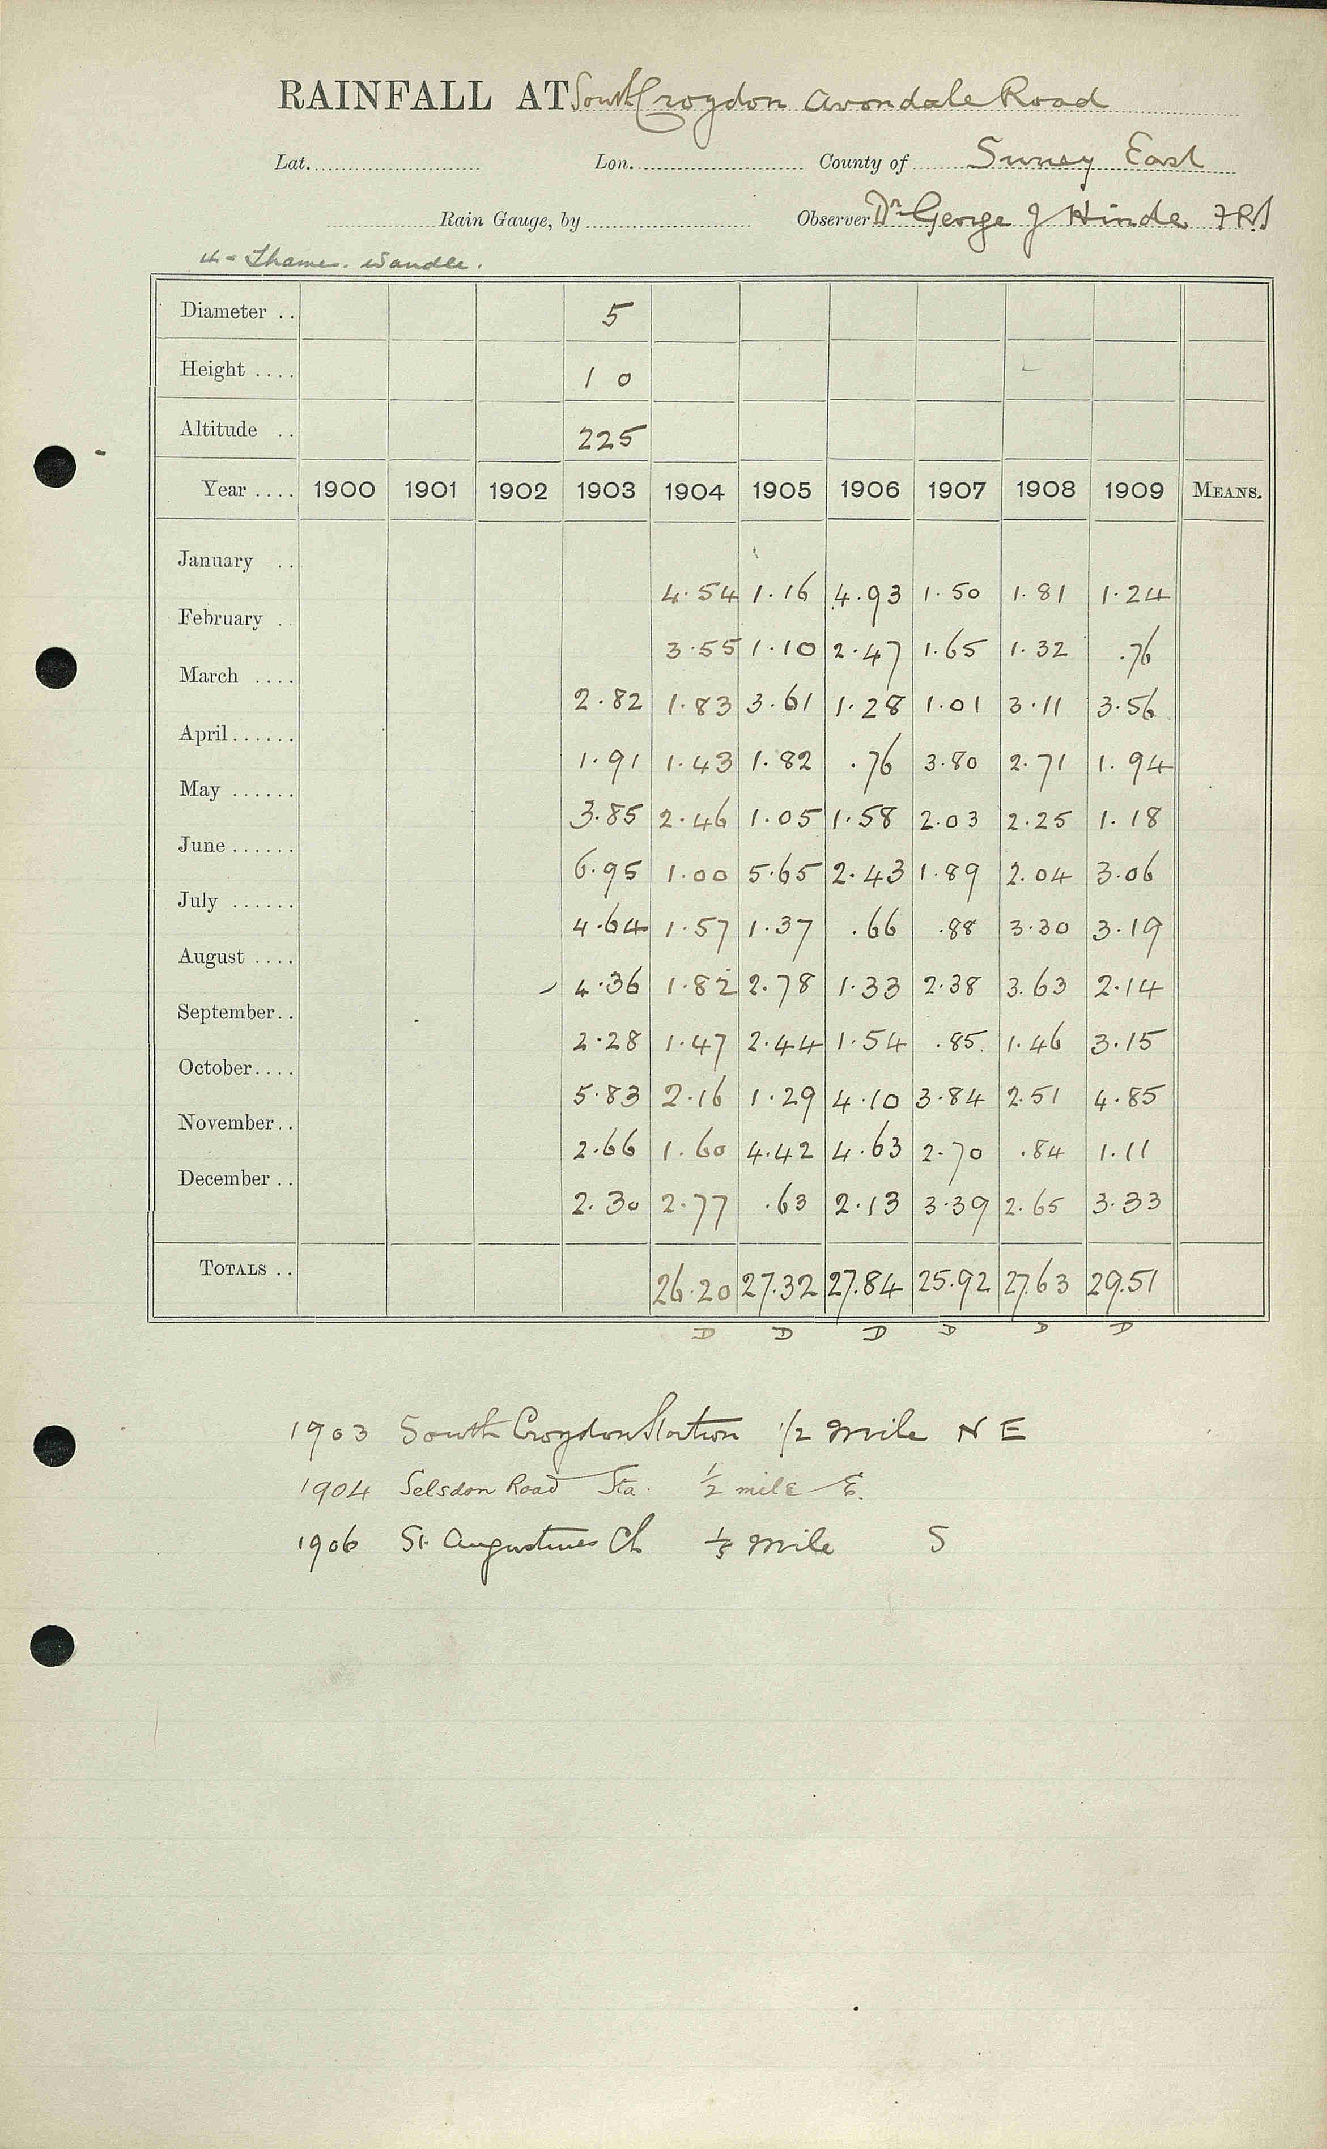 RAINFALL AT South Croydon Avondale Road
Lat. Lon. County of Surrey East
Rain Gauge, by Observer Dr George J Hinde FRS
Thames. Wandle.
Diameter .. 5
Height .... 1 0
Altitude .. 225
Year .... 1900 1901 1902 1903 1904 1905 1906 1907 1908 1909 MEANS.
January .. 4.54 1.16 4.93 1.50 1.81 1.24
February . 3.55 1.10 2.47 1.65 1.32 .76
March .... 2.82 1.83 3.61 1.28 1.01 3.11 3.56
April...... 1.91 1.43 1.82 .76 3.80 2.71 1.94
May ...... 3.85 2.46 1.05 1.58 2.03 2.25 1.18
June...... 6.95 1.00 5.65 2.43 1.89 2.04 3.06
July ...... 4.64 1.57 1.37 .66 .88 3.30 3.19
August .... 4.36 1.82 2.78 1.33 2.38 3.63 2.14
September.. 2.28 1.47 2.44 1.54 .85 1.46 3.15
October.... 5.83 2.16 1.29 4.10 3.84 2.51 4.85
November.. 2.66 1.60 4.42 4.63 2.70 .84 1.11
December .. 2.30 2.77 .63 2.13 3.39 2.65 3.33
TOTALS .. 26.20 27.32 27.84 25.92 27.63 29.51
D D D D D D
1903 South Croydon Station 1/2 mile N E
1904 Selsdon Road Sta. 1/2 mile E.
1906 St Augustines Ch mile S